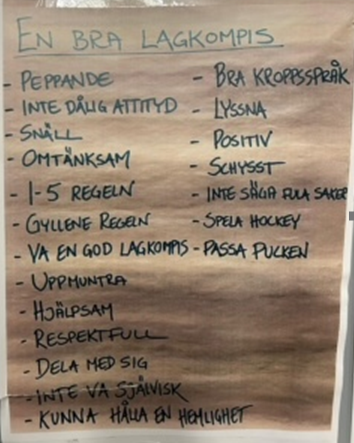 EN BRA LAGKOMPIS
- PEPPANDE
- INTE DÅLIG ATTITYD
- SNÄLL
- OMTÄNKSAM
- 1-5 REGELN
- GYLLENE REGELN
- VA EN GOD LAGKOMPIS
- UPPMUNTRA
- HJÄLPSAM
- RESPEKTFULL
- DELA MED SIG
- INTE VA SJÄLVISK
- KUNNA HÅLLA EN HEMLIGHET
- BRA KROPPSSPRÅK
- LYSSNA
- POSITIV
- SCHYSST
- INTE SÄGA FULA SAKER
- SPELA HOCKEY
- PASSA PUCKEN